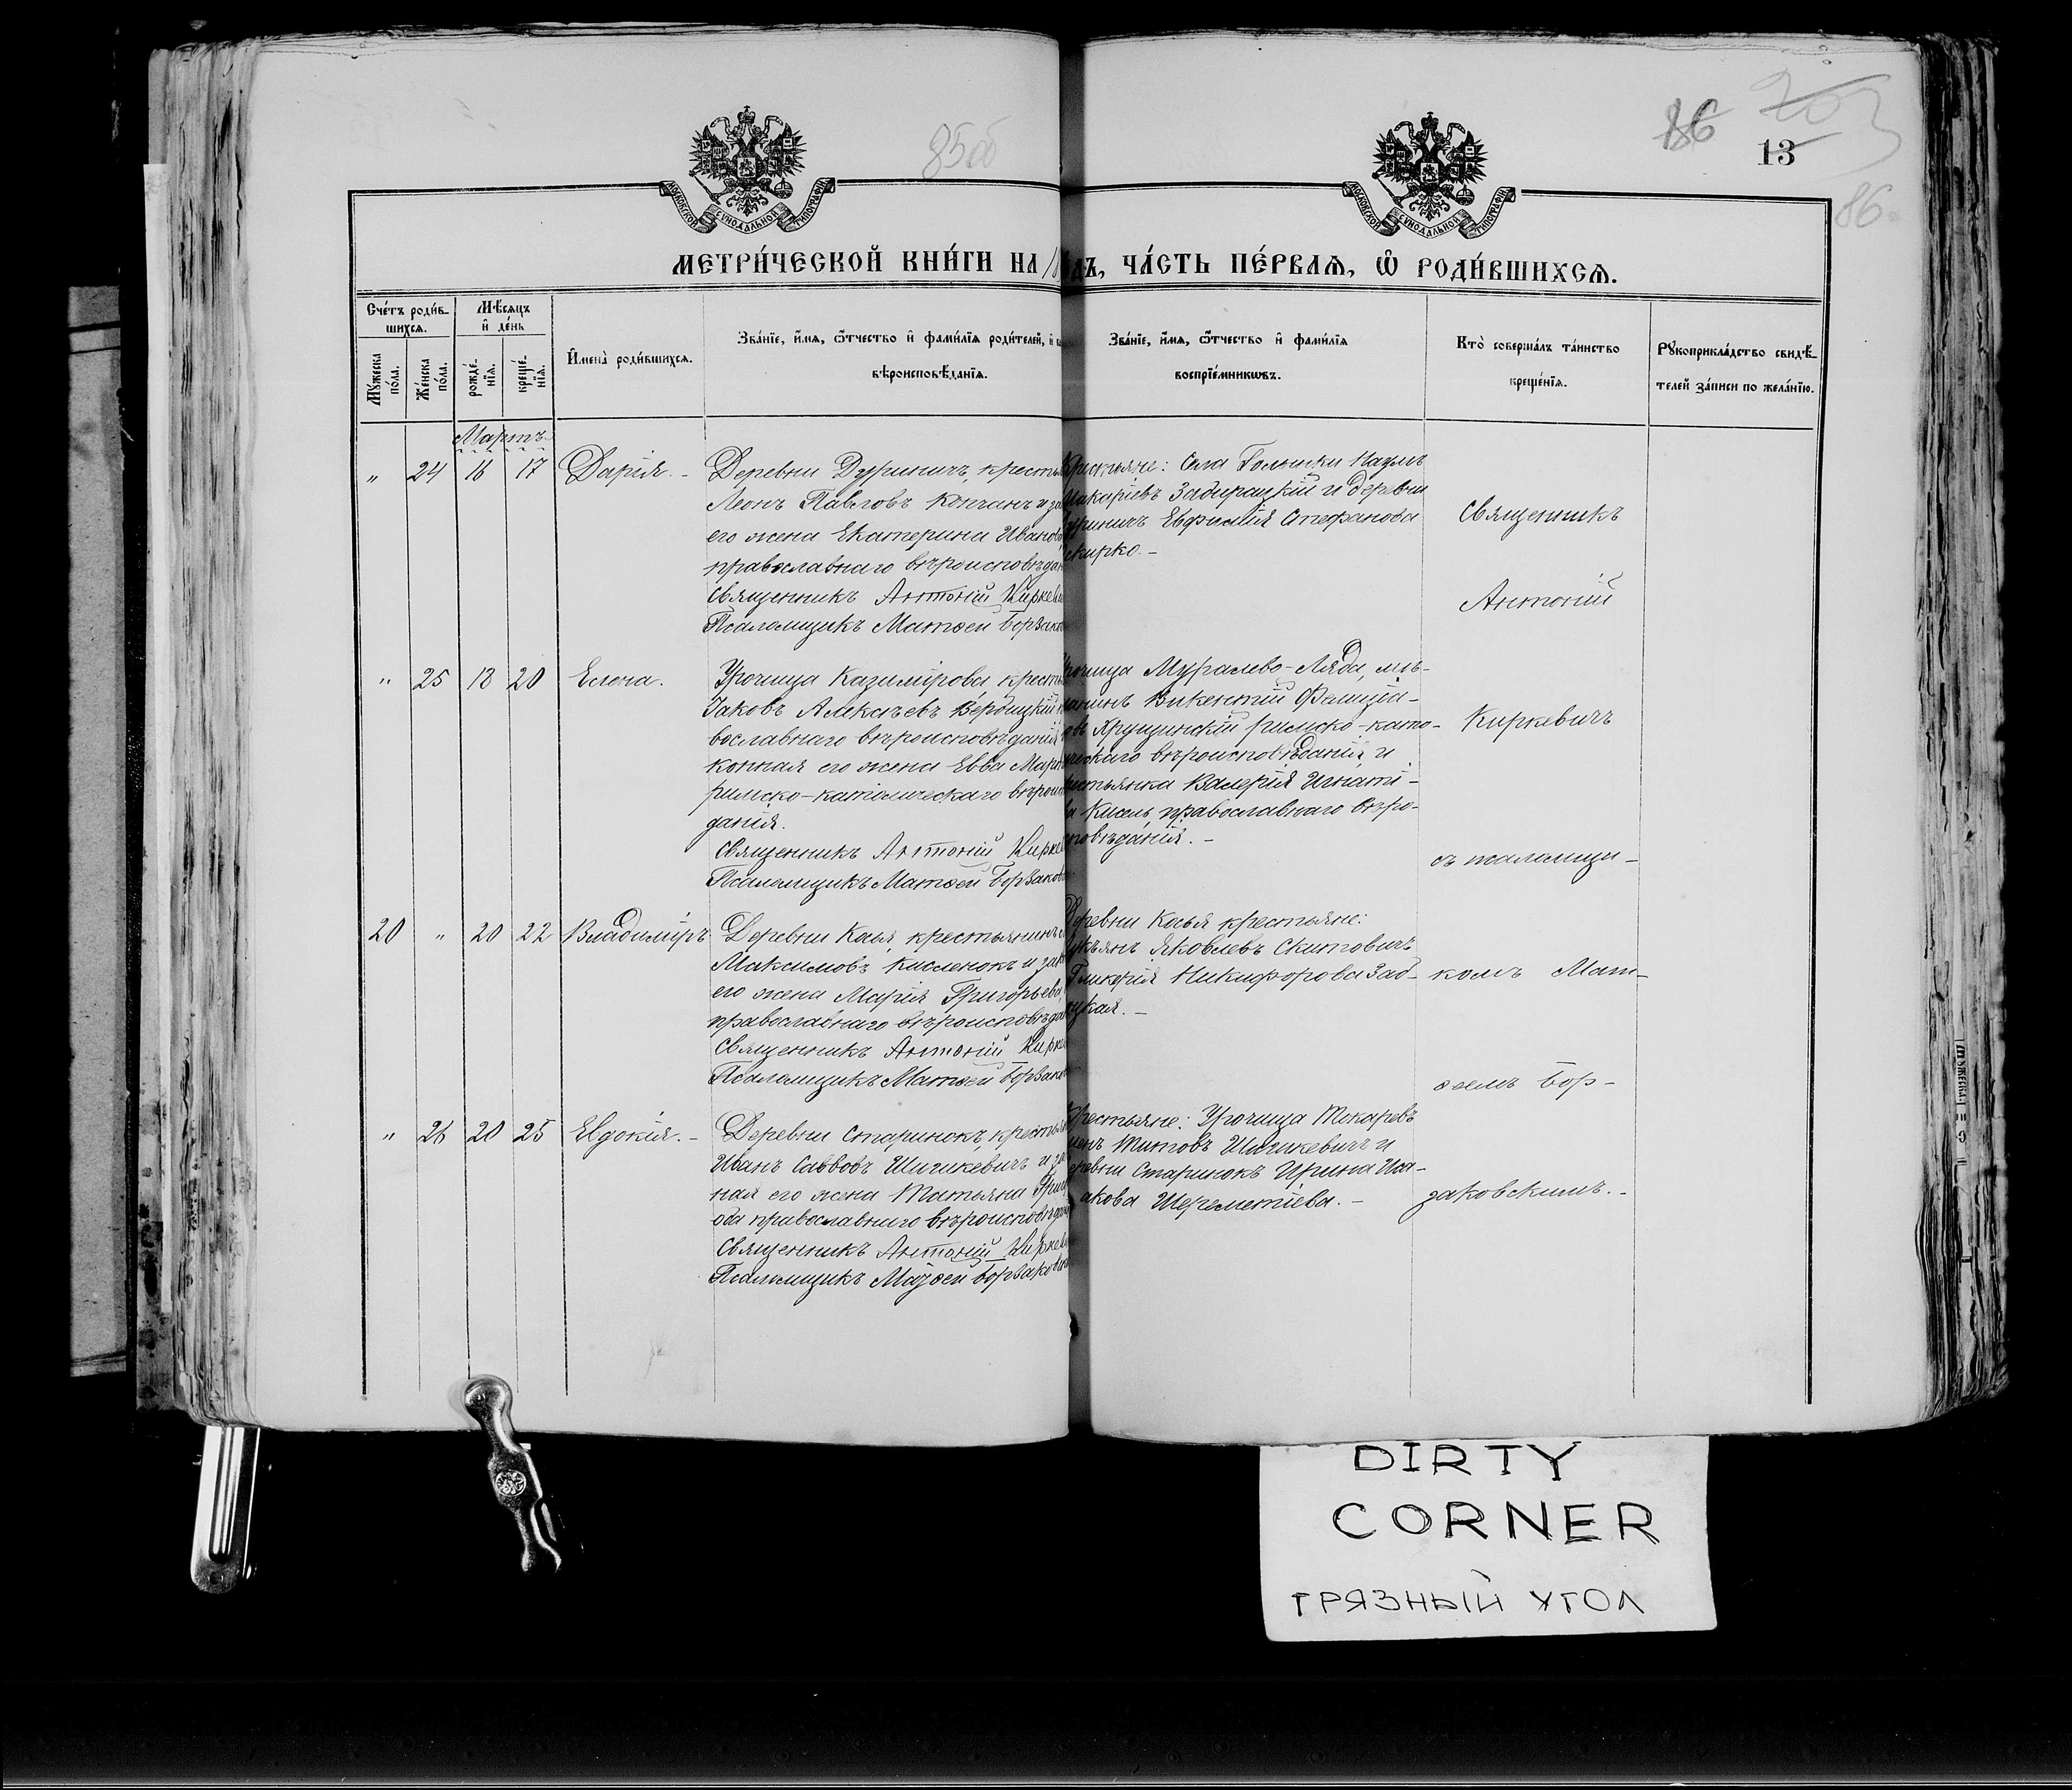 85об
86
203
13
86
МОСКОВСКОЙ СѴНОДАЛЬНОЙ ТИПОГРАФІИ
МОСКОВСКОЙ СѴНОДАЛЬНОЙ ТИПОГРАФІИ
МЕТРИ́ЧЕСКОЙ КНИ́ГИ НА 18 ДЪ, ЧА́СТЬ ПЕ́РВАѦ, Ѽ РОДИ́ВШИХСѦ.
Сче́тъ роди́в-
шихсѧ.
Мꙋ́жеска по́ла.
Же́нска по́ла.
Мѣ́сѧцъ
и҆ де́нь
рожде́-нїѧ.
креще́-нїѧ.
И҆мена̀ роди́вшихсѧ.
Зва́нїе, и҆́мѧ, ѻ҆́тчество и҆ фами́лїѧ роди́телей, и҆
вѣроисповѣ́данїѧ.
Зва́нїе, и҆́мѧ, ѻ҆́тчество и҆ фами́лїѧ
воспрїе́мникѡвъ.
Кто̀ соверша́лъ та́инство
креще́нїѧ.
Рꙋкоприкла́дство свидѣ́-
телей за́писи по жела́нїю.
Мартъ
" 24 16 17 Дарія. -
Деревни Дуриничъ, кресть
Леонъ Павловъ Копчанъ и за
его жена Екатерина Иванов
православнаго вѣроисповѣдан
Священникъ Антоній Кирке
Псаломщикъ Матѳей Борзако
Крестьяне: Села Голынки Наумъ
Макаріевъ Задирацкій и деревни
Дуриничъ Евфимія Стефанова
Скирко. -
Священникъ
Антоній
" 25 18 20 Елена.
Урочища Казимірова, кресть
Іаковъ Алексѣевъ Вербицкій
вославнаго вѣроисповѣданія
конная его жена Евва Март
римско-католическаго вѣроис
данія.
Священникъ Антоній Кирке
Псаломщикъ Матѳей Борзаков
рочища Муралево-Ляда, мѣ-
щанинъ Викентій Фелиці-
Ярущинскій римско-като-
ческаго вѣроисповѣданія, и
рестьянка Валерія Игнаті-
Кисель, православнаго вѣро-
повѣданія. -
Киркевичъ
съ псаломщи-
20 " 20 22 Владиміръ
Деревни Косья, крестьянинъ
Максимовъ Кисленокъ и зак
его жена Марія Григорьева,
православнаго вѣроисповѣдан
Священникъ Антоній Кирке
Псаломщикъ Матѳей Борзако
Деревни Косья крестьяне:
укьянъ Яковлевъ Скитовичъ
Гликерія Никифорова Зад-
цкая. -
комъ Мат-
ѳеемъ Бор-
" 26 20 25 Евдокія. -
Деревни Старинокъ, крестья
Иванъ Саввовъ Шигикевичъ и за
ная его жена Татьяна Григ
оба православнаго вѣроисповѣдан
Священникъ Антоній Кирке
Псаломщикъ Матѳей Борзаков
Крестьяне: Урочища Токаревъ
Титовъ Шигикевичъ и
еревни Старинокъ Ирина Иса-
акова Шереметіева. -
заковскимъ. -
DIRTY
CORNER
ГРЯЗНЫЙ УГОЛ